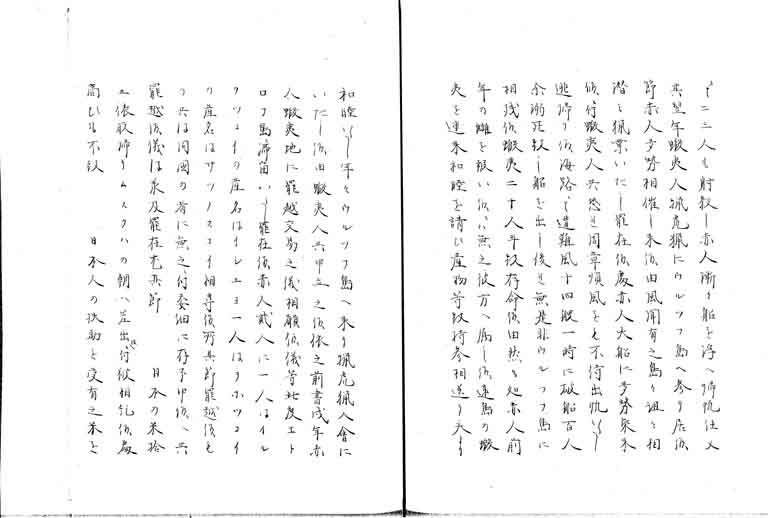 二三人も射殺し赤人漸々船を浮へ帰帆仕又
其翌年蝦夷人猟虎猟にウルツフ島へ参り居候
節赤人多勢相催し来候由風聞有之島々迯相
潜々猟業いたし罷在候処赤人大船に多勢乗来
候に付蝦夷人共恐怖周章順風をも不待出帆いたし
逃帰り候海路に遭難風十四艘一時に破船百人
余溺死致し船を出し後も無是非ウルツフ島に
相残候蝦夷二十人斗致存命候由然る処赤人前
年の雖を報い候は無之彼方へ属し候遠島の蝦
夷を連来和睦を請ひ産物等致持参相送り夫より
和睦いたし年々ウルツフ島へ来り猟虎猟人会に
いたし候由蝦夷人共申立之候依之前書戌年赤
人蝦夷地に罷越交易之儀相願候儀等此度エト
ロフ島滞留いたし罷在候赤人弐人に一人はイル
クツコイの産名はイシユヨ一人はヲホツコイ
の産名はサツノスコイ相尋候所其節罷越候も
の共は同国の者に無之に付委細に存不申候へ共
罷越候儀は承及罷在尤其節　日本の米拾
二俵取帰りムスクハの朝へ差出候に付彼相糺候処
商ひにも不致　日本人の扶助を受有之米を